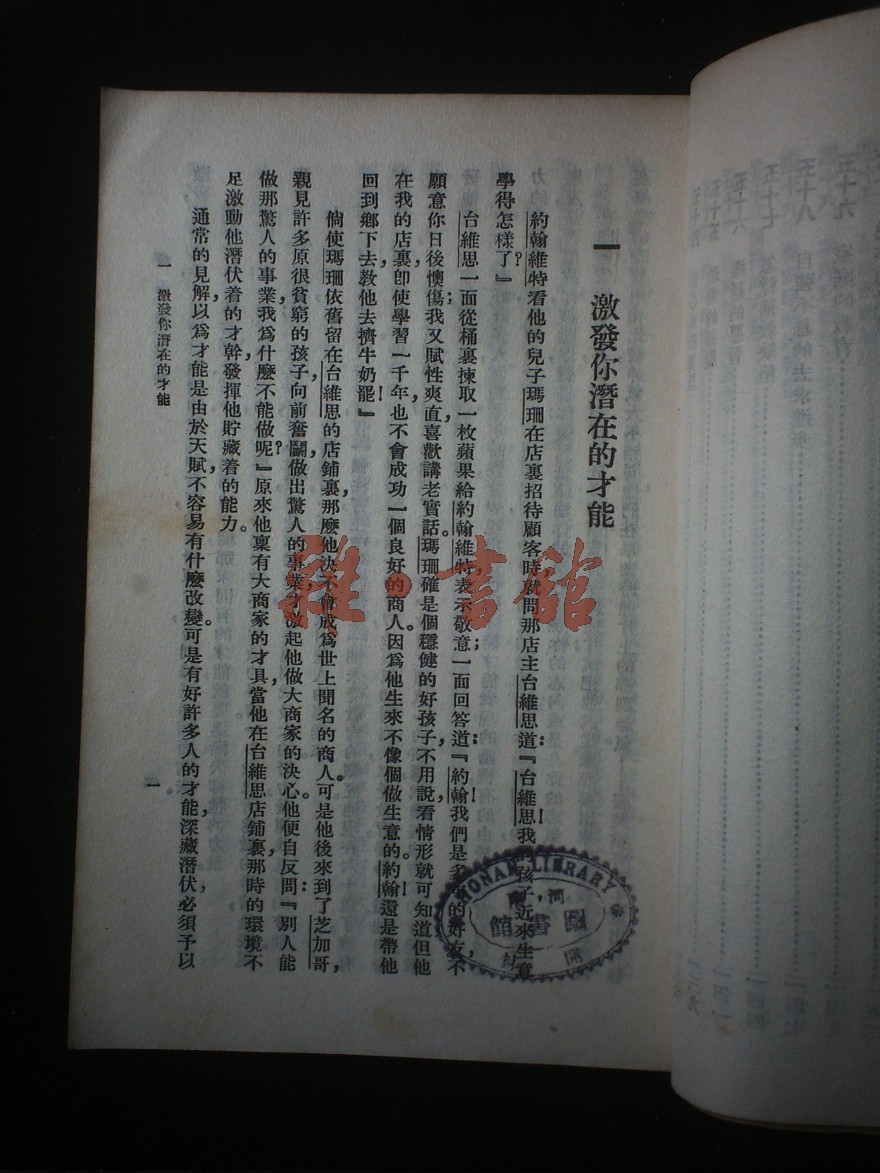 一 激發你潛在的才能
約翰維特看他的兒子瑪珊在店裏招待顧客時，就問那店主台維思道：『台維思！我的孩子近來生意
學得怎樣了？』
台維思一面從桶裏揀取一枚蘋果給約翰維特，表示敬意；一面回答道：『約翰！我們是多年的好友，不
願意你日後懊傷；我又賦性爽直，喜歡講老實話。瑪珊確是個穩健的好孩子，不用說，看情形就可知道，但他
在我的店裏，即使學習一千年，也不會成功一個良好的商人。因爲他生來不像個做生意的。約翰！還是帶他
回到鄉下去，教他去擠牛奶罷！』
倘使瑪珊依舊留在台維思的店鋪裏，那麼他決不會成爲世上聞名的商人。可是他後來到了芝加哥，
親見許多原很貧窮的孩子，向前奮鬭，做出驚人的事業，才激起他做大商家的決心。他便自反問：『別人能
做那驚人的事業，我爲什麼不能做呢？』原來他稟有大商家的才具，當他在台維思店鋪裏，那時的環境不
足激動他潛伏着的才幹，發揮他貯藏着的能力。
通常的見解，以爲才能是由於天賦，不容易有什麼改變。可是有好許多人的才能，深藏潛伏，必須予以
一 激發你潛在的才能
一
HONAN LIBRARY
河南
圖書館
雜·書館
五十六
五十八
五十七